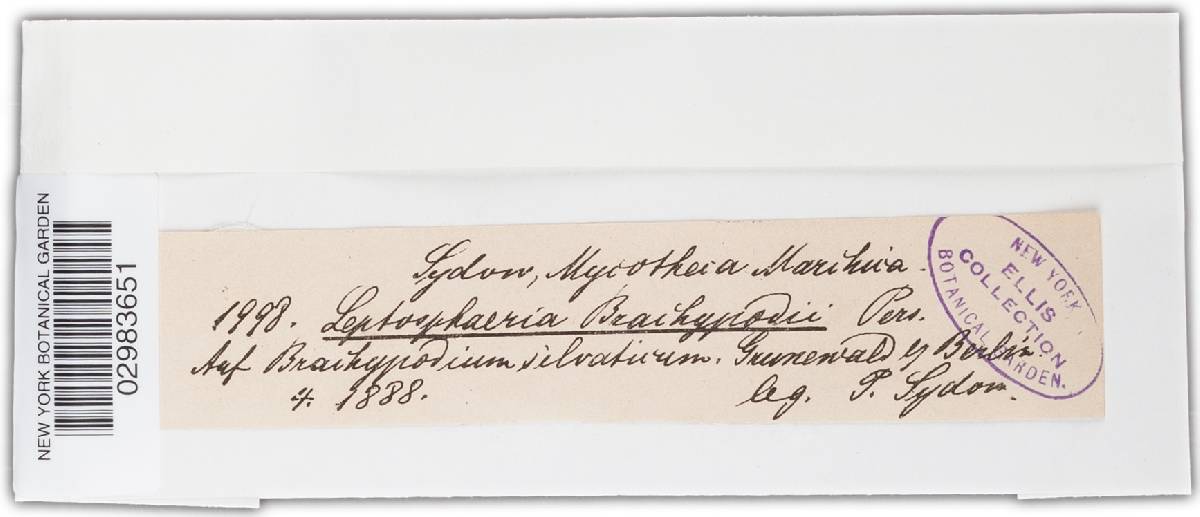 Sydow, Mycotheca Marchica.
1998. Leptosphaeria Brachypodii Pers.
Auf Brachypodium silvaticum. Grunewald b Berlin
4. 1888. leg. P. Sydow.
NEW YORK
ELLIS
COLLECTION
BOTANICAL GARDEN.
NEW YORK BOTANICAL GARDEN
02983651